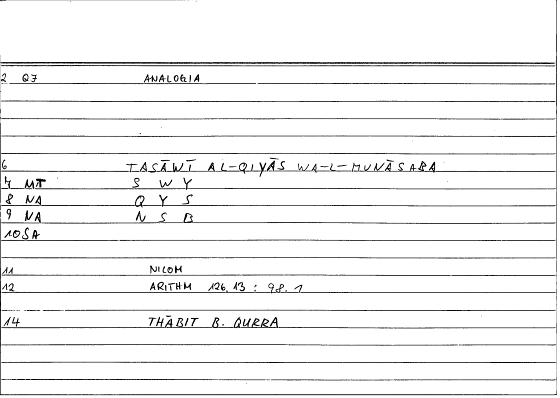 2 Q7 ANALOGIA
6 TASĀWĪ AL-QIYĀS WA-L-MUNĀSABA
7 MT S W Y
8 NA Q Y S
9 NA N S B
10 SA
11 NICOM
12 ARITHM 126,13 : 98.1
14 THĀBIT B. QURRA